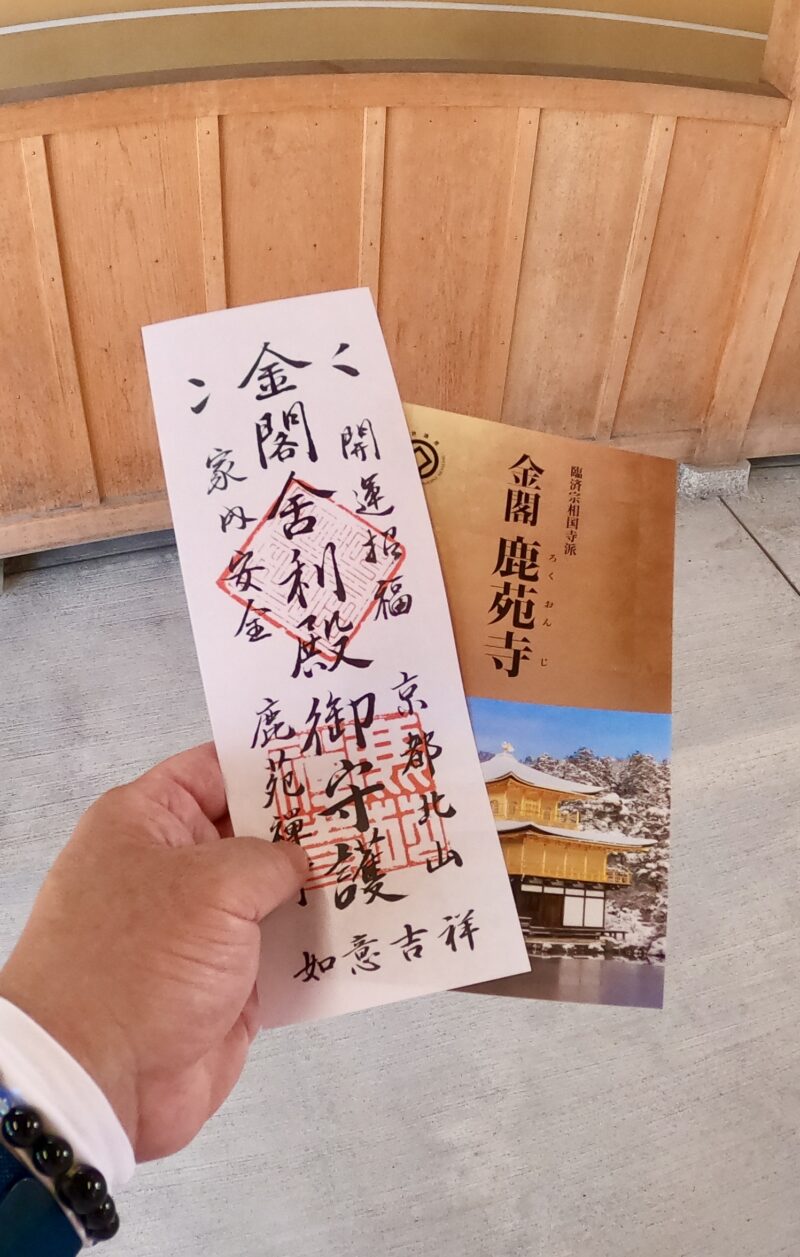 金閣舎利殿御守護
開運招福
家内安全
京都北山
鹿苑禅
如意吉祥
臨済宗相国寺派
金閣 鹿苑寺
ろくおんじ